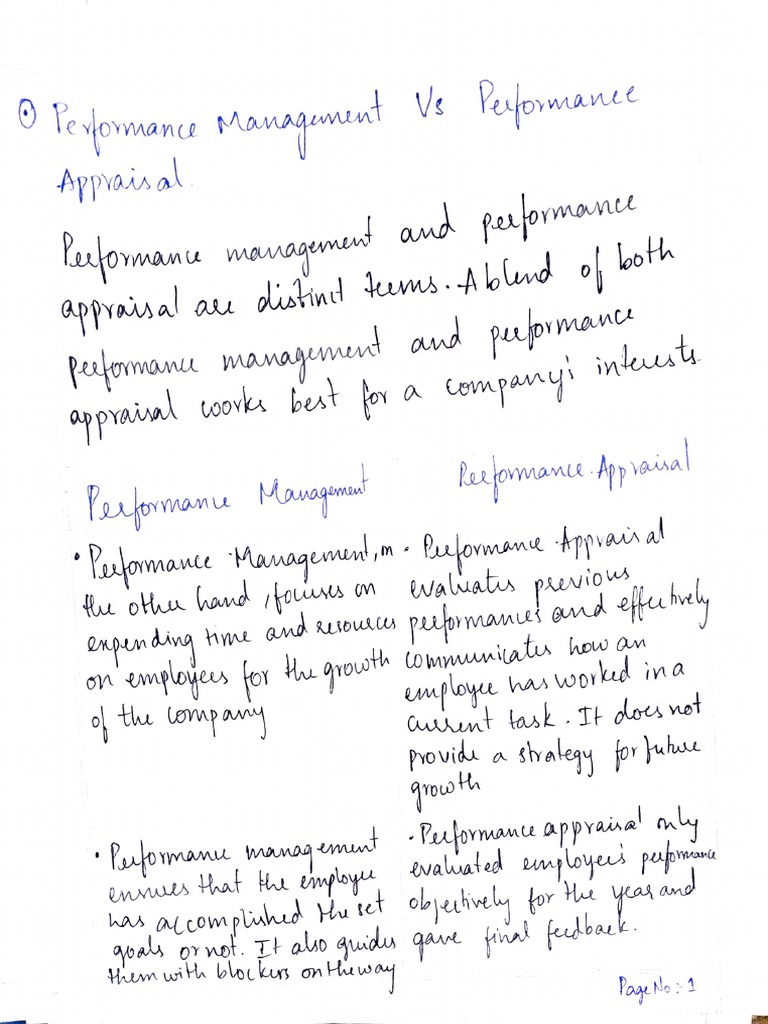 Performance Management Vs Performance
Appraisal.
Performance management and performance
appraisal are distinct terms. A blend of both
performance management and performance
appraisal works best for a company's interests.
Performance Management
Performance Appraisal
• Performance Management, on
the other hand, focuses on
expending time and resources
on employees for the growth
of the company
• Performance Appraisal
evaluates previous
performances and effectively
communicates how an
employee has worked in a
current task. It does not
provide a strategy for future
growth
• Performance management
ensures that the employee
has accomplished the set
goals or not. It also guides
them with blockers on the way
• Performance appraisal only
evaluated employee's performance
objectively for the year and
gave final feedback.
Page No:- 1